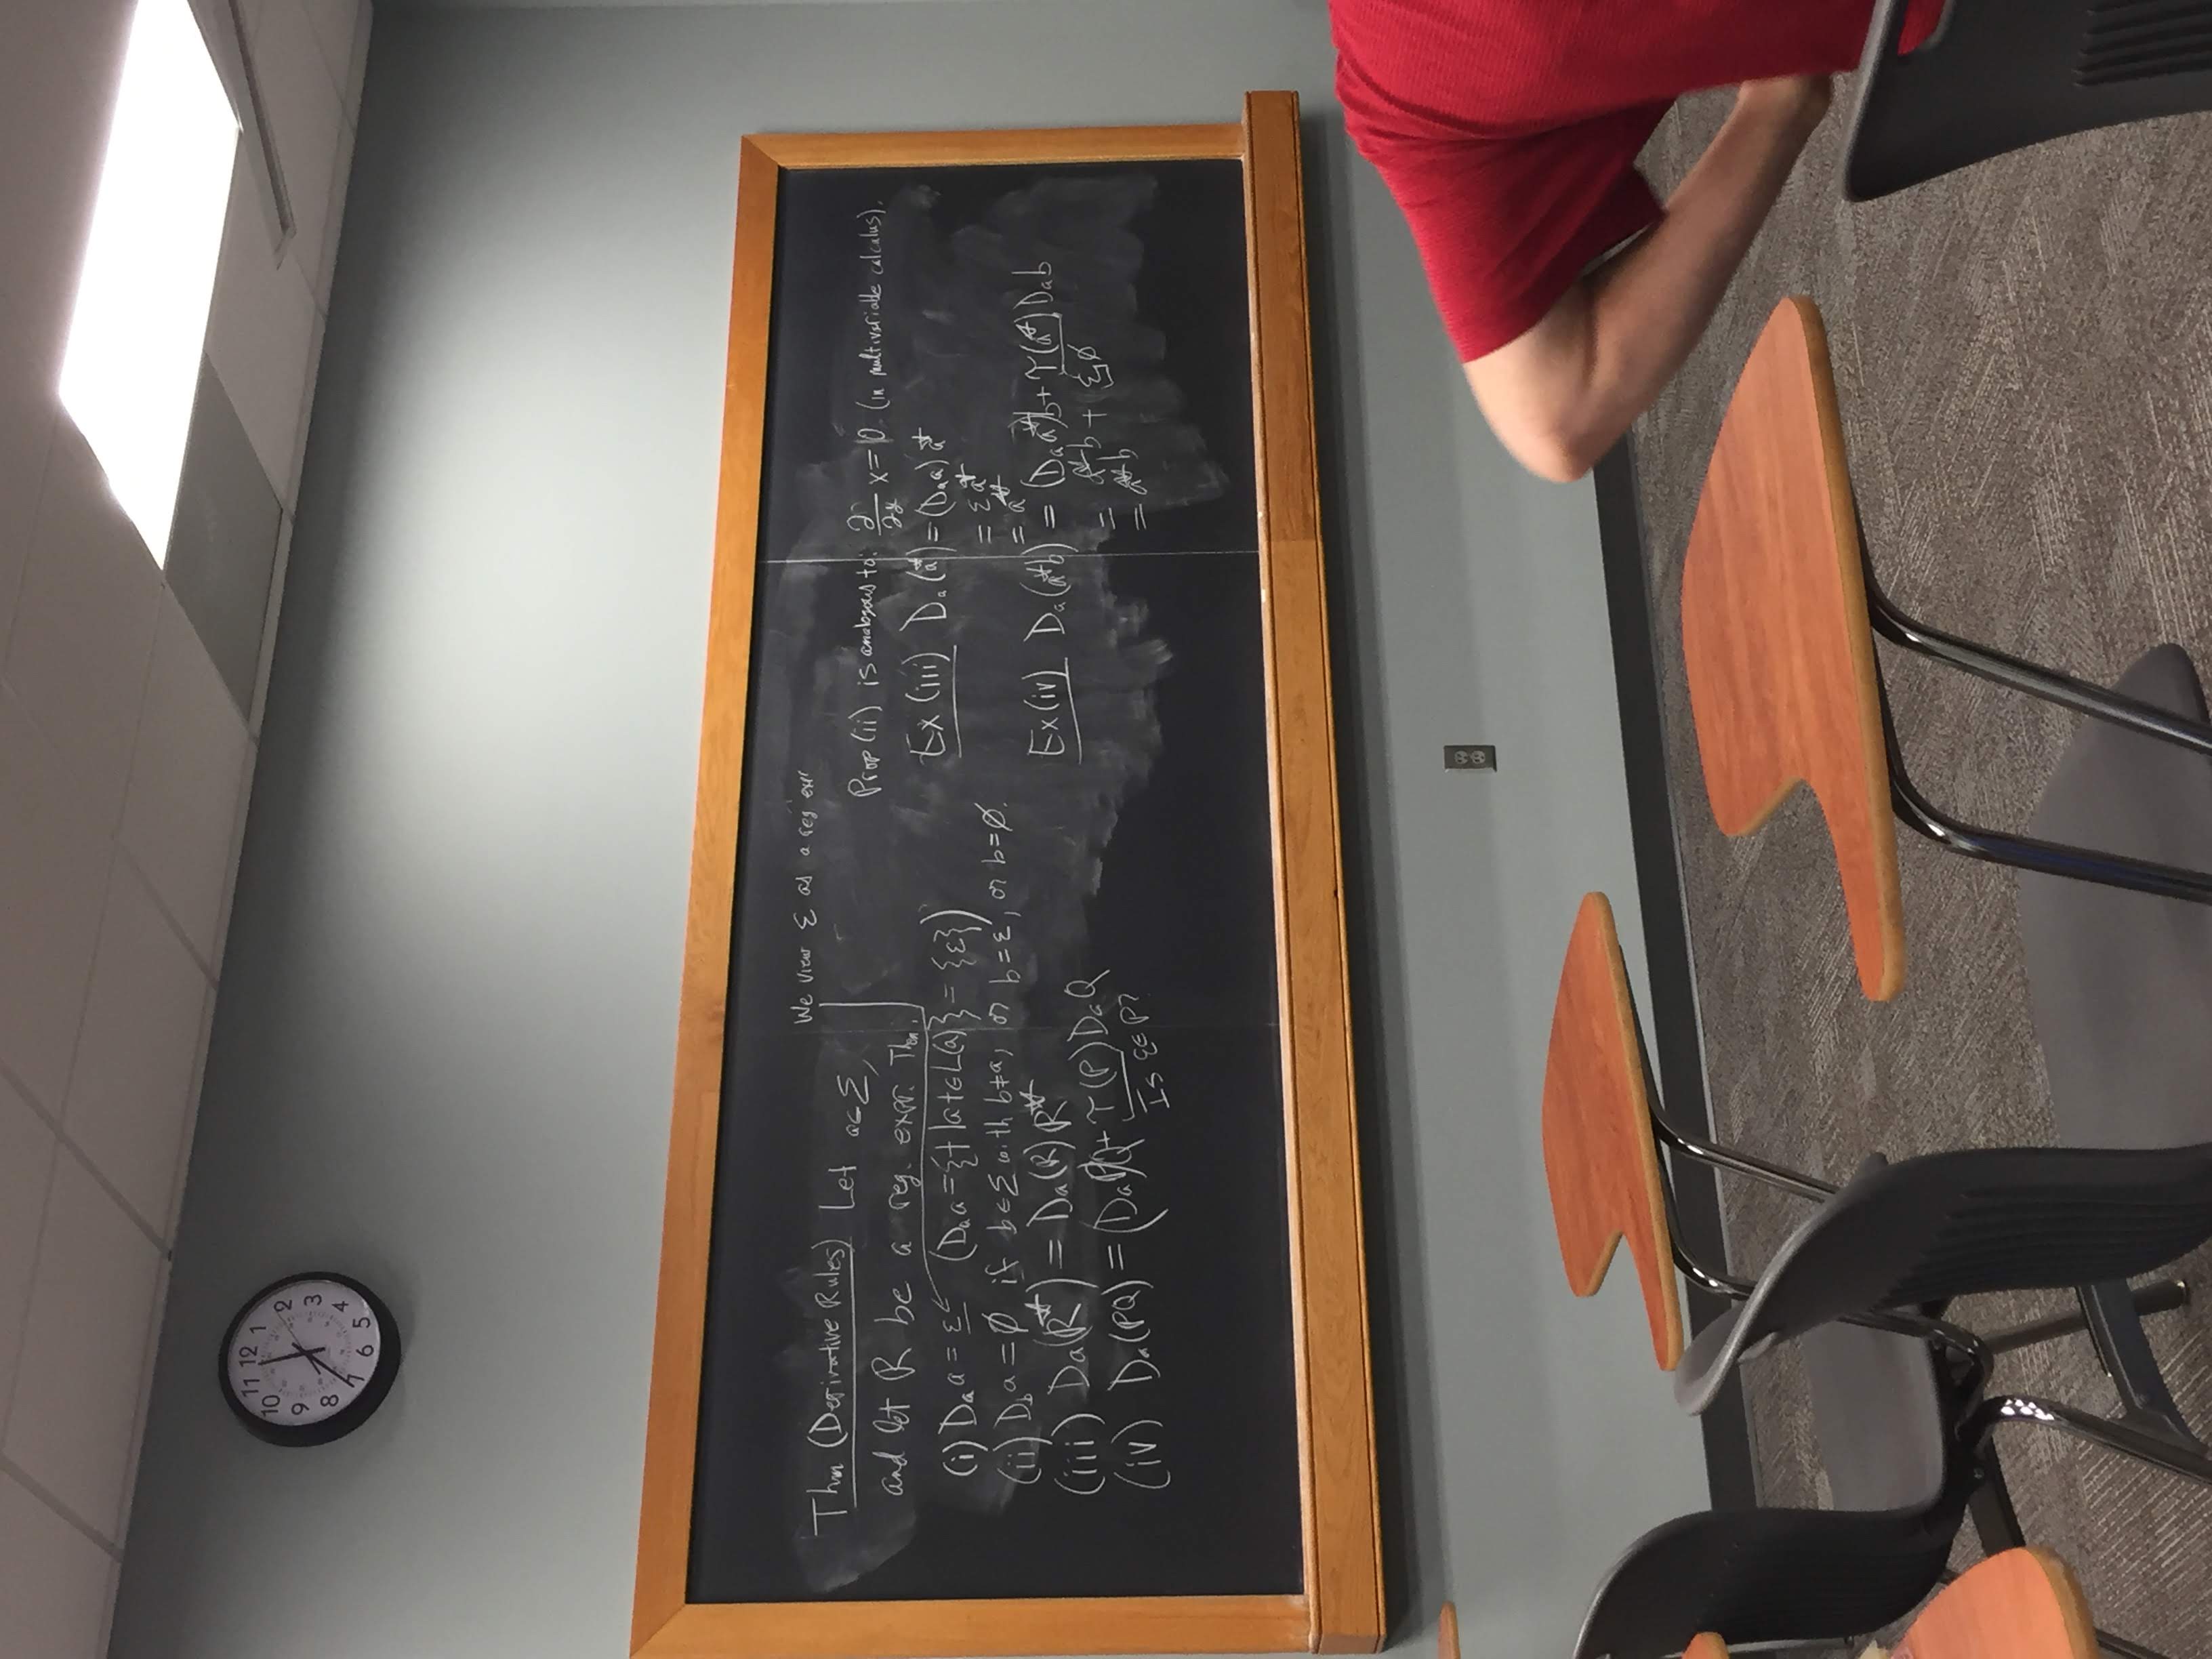 11 12 1
10 2
9 3
8 4
7 6 5
We view ε as a reg expr
Thm (Derivative Rules) Let a∈Σ,
and let R be a reg. expr. Then,
(i) Dₐa = ε (Dₐa = {t | at∈L(a)} = {ε})
(ii) D_b a = ∅ if b∈Σ with b≠a, or b=ε, or b=∅.
(iii) Dₐ(R*) = Dₐ(R) R*
(iv) Dₐ(PQ) = (DₐP)Q + τ(P) DₐQ
Is ε∈P?
Prop (ii) is analogous to: ∂/∂y x = 0 (in multivariable calculus).
Ex (iii) Dₐ(a*) = (Dₐa) a*
= εa*
= a*
Ex (iv) Dₐ(a*b) = (Dₐa*)b + τ(a*) Dₐb
= a*b + ε∅
= a*b